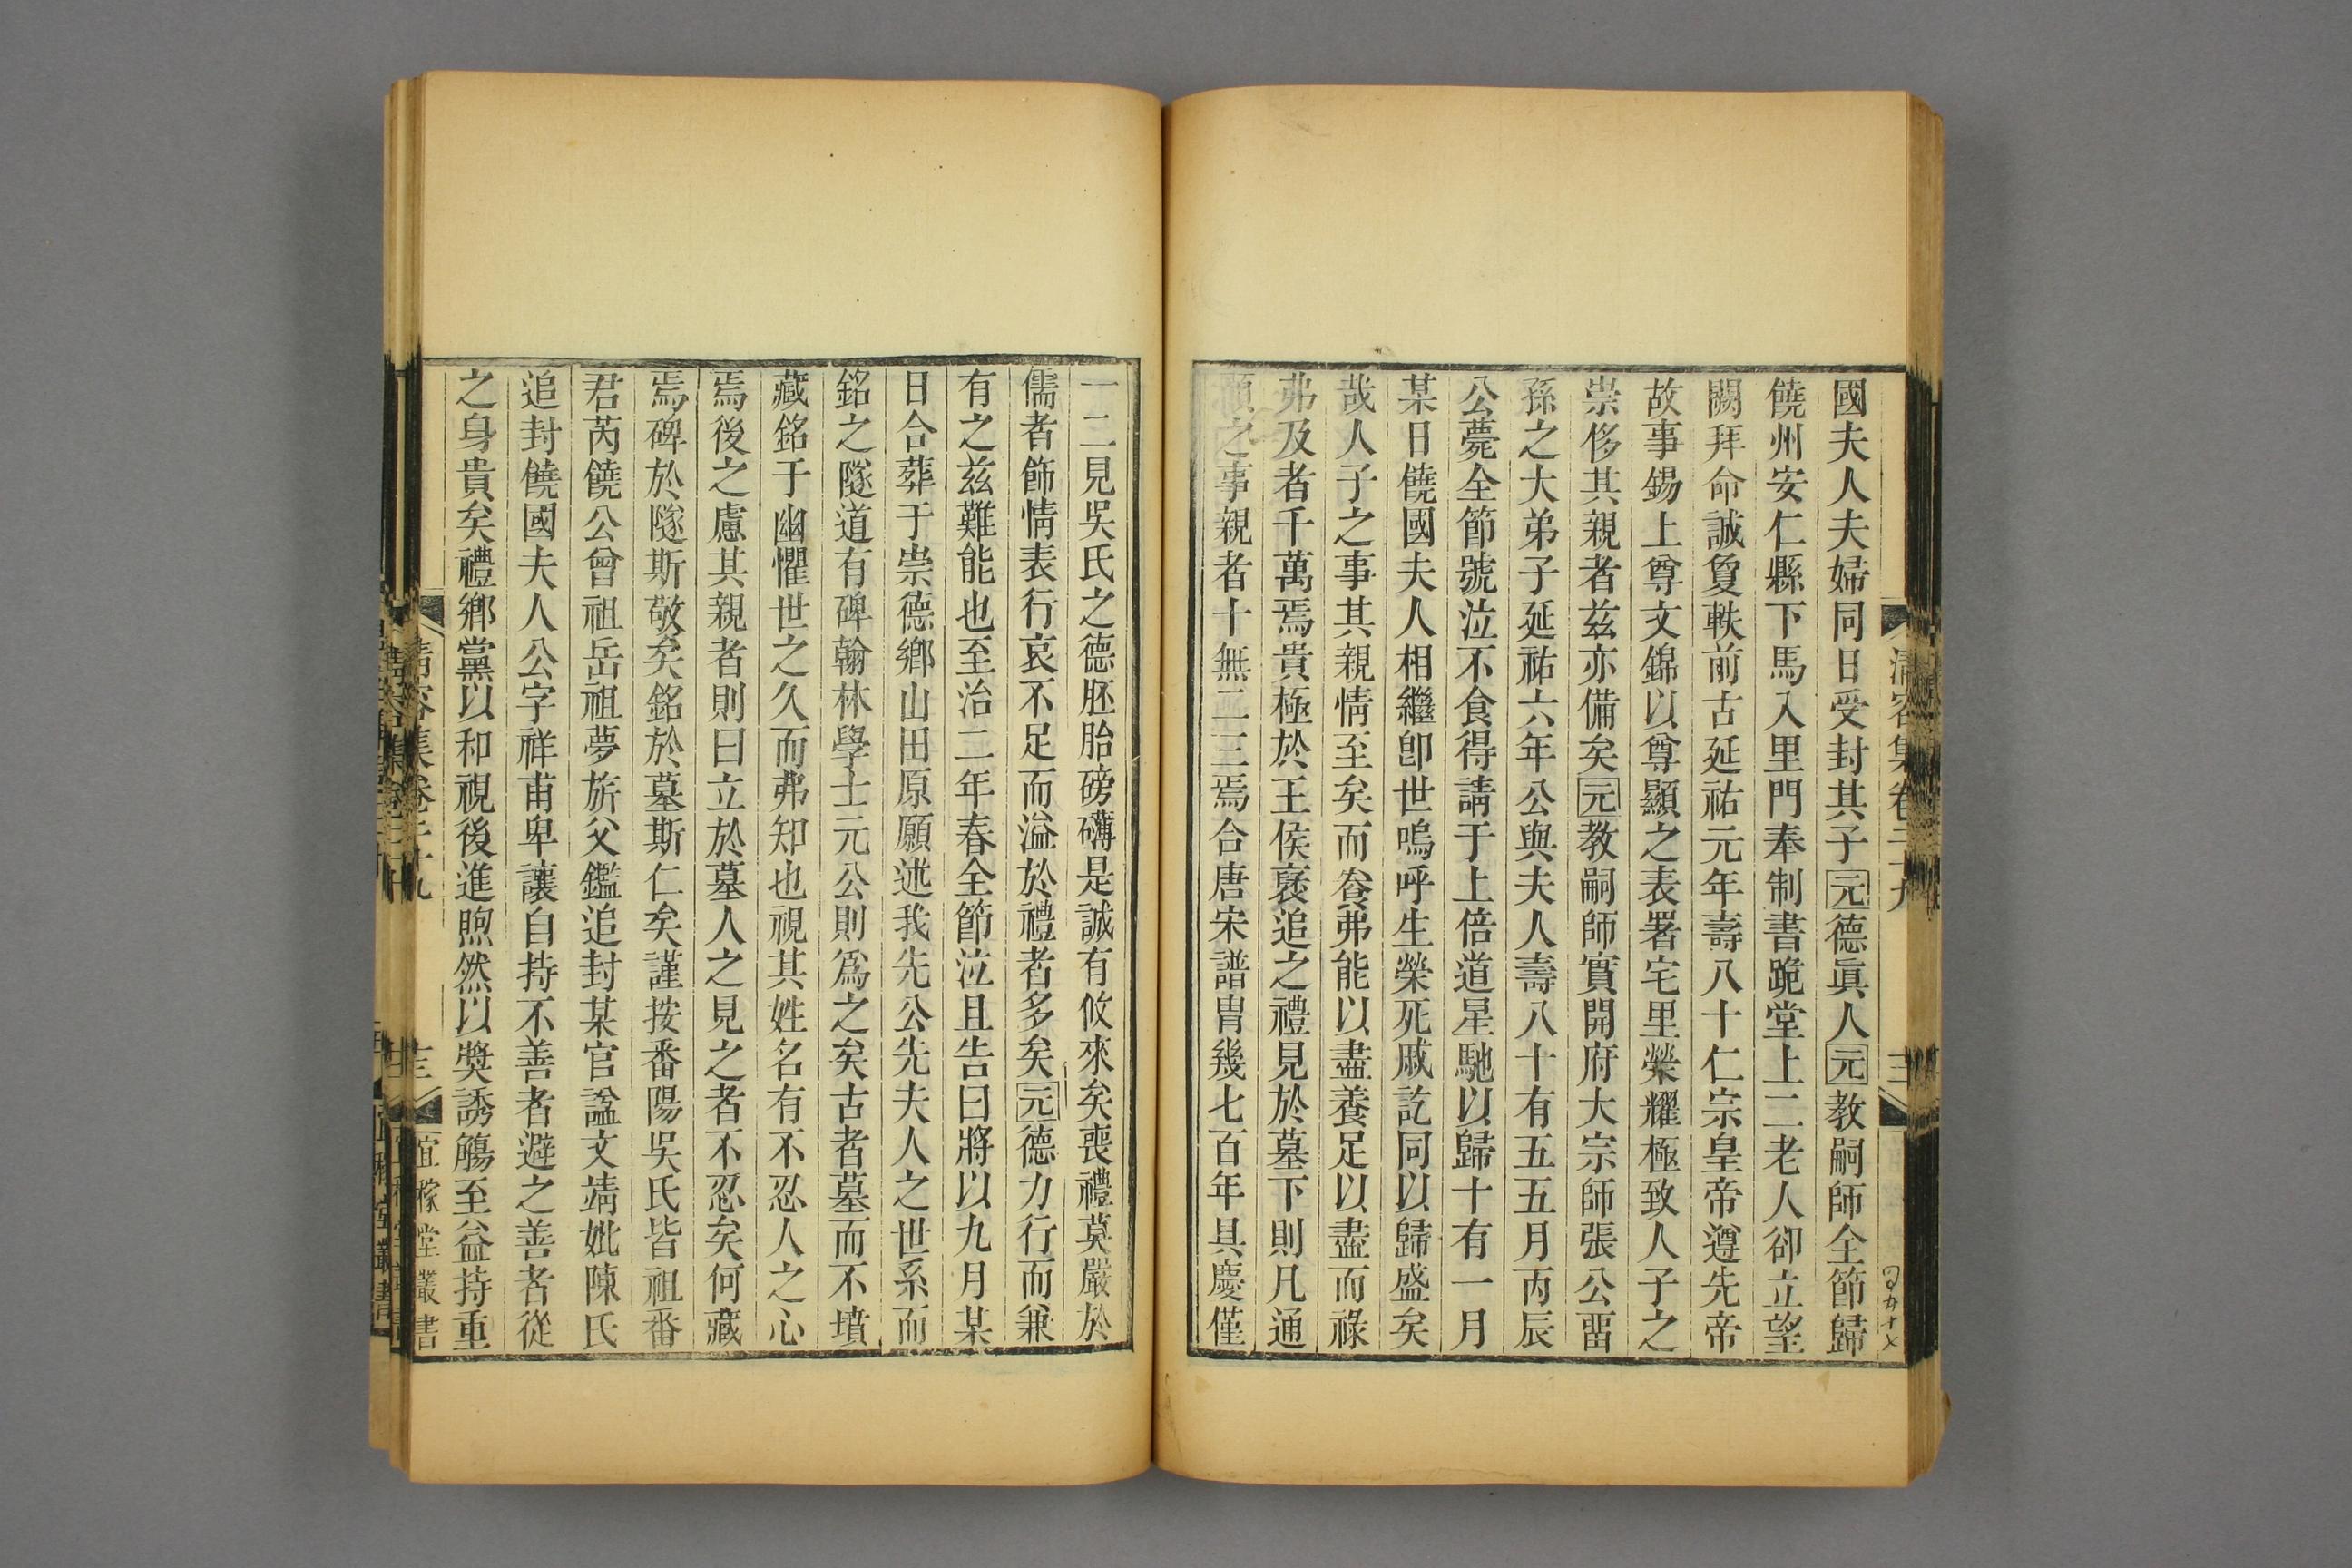 清容集卷二十九
國夫人夫婦同日受封其子元德眞人元教嗣師全節歸
饒州安仁縣下馬入里門奉制書跪堂上二老人卻立望
闕拜命誠敻軼前古延祐元年壽八十仁宗皇帝遵先帝
故事錫上尊文錦以尊顯之表署宅里榮耀極致人子之
崇侈其親者茲亦備矣元教嗣師實開府大宗師張公畱
孫之大弟子延祐六年公與夫人壽八十有五五月丙辰
公薨全節號泣不食得請于上倍道星馳以歸十有一月
某日饒國夫人相繼卽世嗚呼生榮死戚訖同以歸盛矣
哉人子之事其親情至矣而養弗能以盡養足以盡而祿
弗及者千萬焉貴極於王侯襃追之禮見於墓下則凡通
顯之事親者十無二三焉合唐宋譜冑幾七百年具慶僅
一二見吳氏之德胚胎磅礴是誠有攸來矣喪禮莫嚴於
儒者飾情表行哀不足而溢於禮者多矣元德力行而兼
有之茲難能也至治二年春全節泣且告曰將以九月某
日合葬于崇德鄉山田原願述我先公先夫人之世系而
銘之隧道有碑翰林學士元公則爲之矣古者墓而不墳
藏銘于幽懼世之久而弗知也視其姓名有不忍人之心
焉後之慮其親者則曰立於墓人之見之者不忍矣何藏
焉碑於隧斯敬矣銘於墓斯仁矣謹按番陽吳氏皆祖番
君芮饒公曾祖岳祖夢旂父鑑追封某官諡文靖妣陳氏
追封饒國夫人公字祥甫卑讓自持不善者避之善者從
之身貴矣禮鄉黨以和視後進煦然以奬誘觴至益持重
清容集卷二十九
宜稼堂叢書